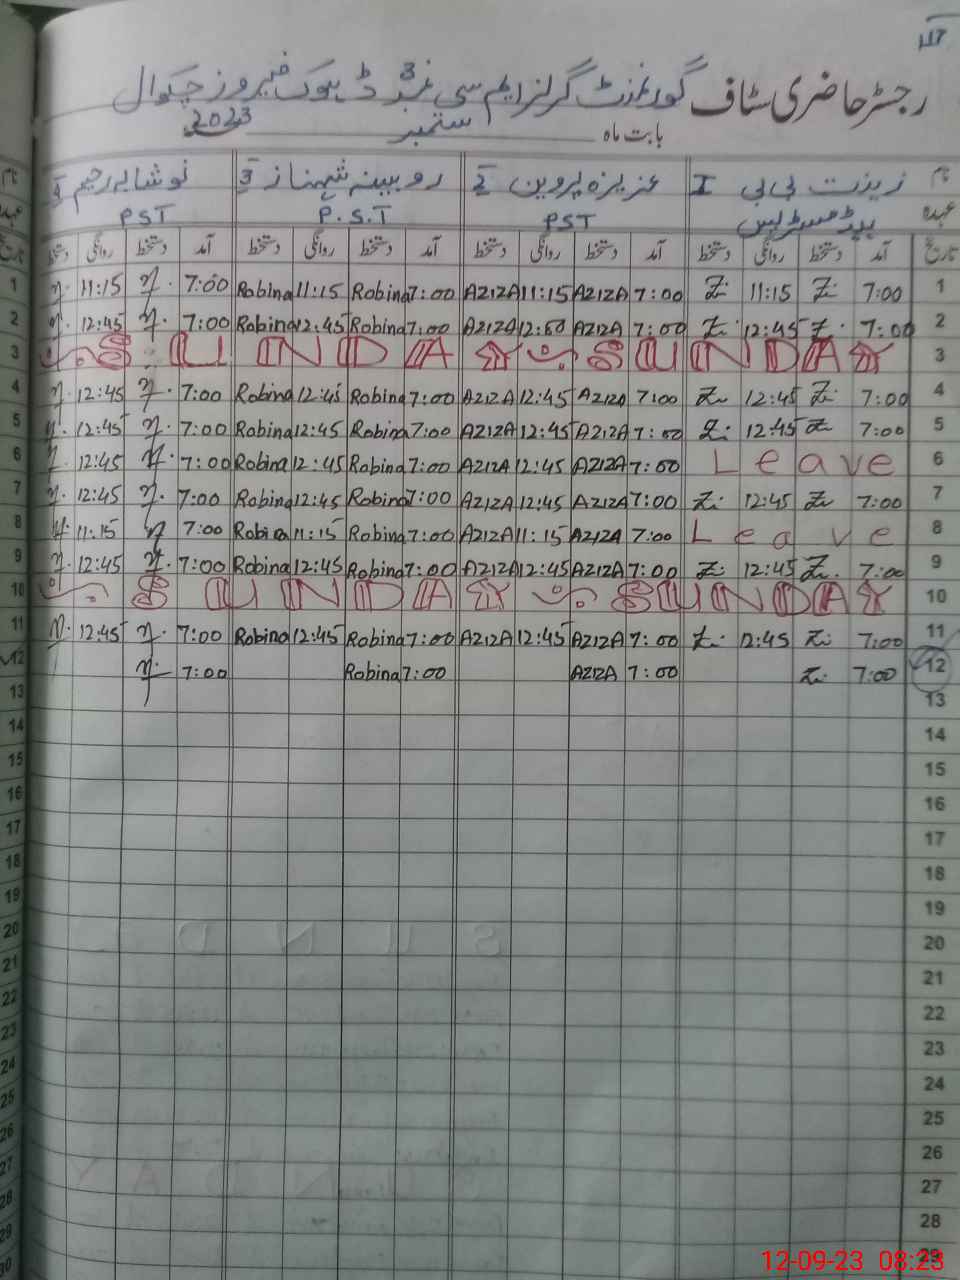 رجسٹر حاضری سٹاف گورنمنٹ گرلز ایم سی نمبر 3 ڈہوک فیروز چکوال
بابت ماہ ستمبر 2023
نام زینت بی بی 1 عزیزہ پروین 2 روبینہ شہناز 3 نوشابہ رحیم 4
عہدہ ہیڈمسٹریس PST P.S.T PST
تاریخ آمد دستخط روانگی دستخط آمد دستخط روانگی دستخط آمد دستخط روانگی دستخط آمد دستخط روانگی دستخط
1 7:00 Z. 11:15 Z. 7:00 AZIZA 11:15 AZIZA 7:00 Robina 11:15 Robina 7:00 11:15 1
2 7:00 Z. 12:45 Z. 7:00 AZIZA 12:50 AZIZA 7:00 Robina 12:45 Robina 7:00 12:45 2
3 SUNDAY SUNDAY 3
4 7:00 Z. 12:45 Z. 7:00 AZIZA 12:45 AZIZA 7:00 Robina 12:45 Robina 7:00 12:45 4
5 7:00 Z. 12:45 Z. 7:00 AZIZA 12:45 AZIZA 7:00 Robina 12:45 Robina 7:00 12:45 5
6 Leave 7:00 AZIZA 12:45 AZIZA 7:00 Robina 12:45 Robina 7:00 12:45 6
7 7:00 Z. 12:45 Z. 7:00 AZIZA 12:45 AZIZA 7:00 Robina 12:45 Robina 7:00 12:45 7
8 Leave 7:00 AZIZA 11:15 AZIZA 7:00 Robina 11:15 Robina 7:00 11:15 8
9 7:00 Z. 12:45 Z. 7:00 AZIZA 12:45 AZIZA 7:00 Robina 12:45 Robina 7:00 12:45 9
10 SUNDAY SUNDAY 10
11 7:00 Z. 12:45 Z. 7:00 AZIZA 12:45 AZIZA 7:00 Robina 12:45 Robina 7:00 12:45 11
12 7:00 Z. 7:00 AZIZA 7:00 Robina 7:00 12
13 13
14 14
15 15
16 16
17 17
18 18
19 19
20 20
21 21
22 22
23 23
24 24
25 25
26 26
27 27
28 28
29 29
30
12-09-23 08:23